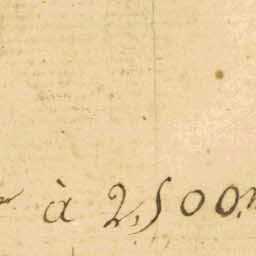 à 2,500.